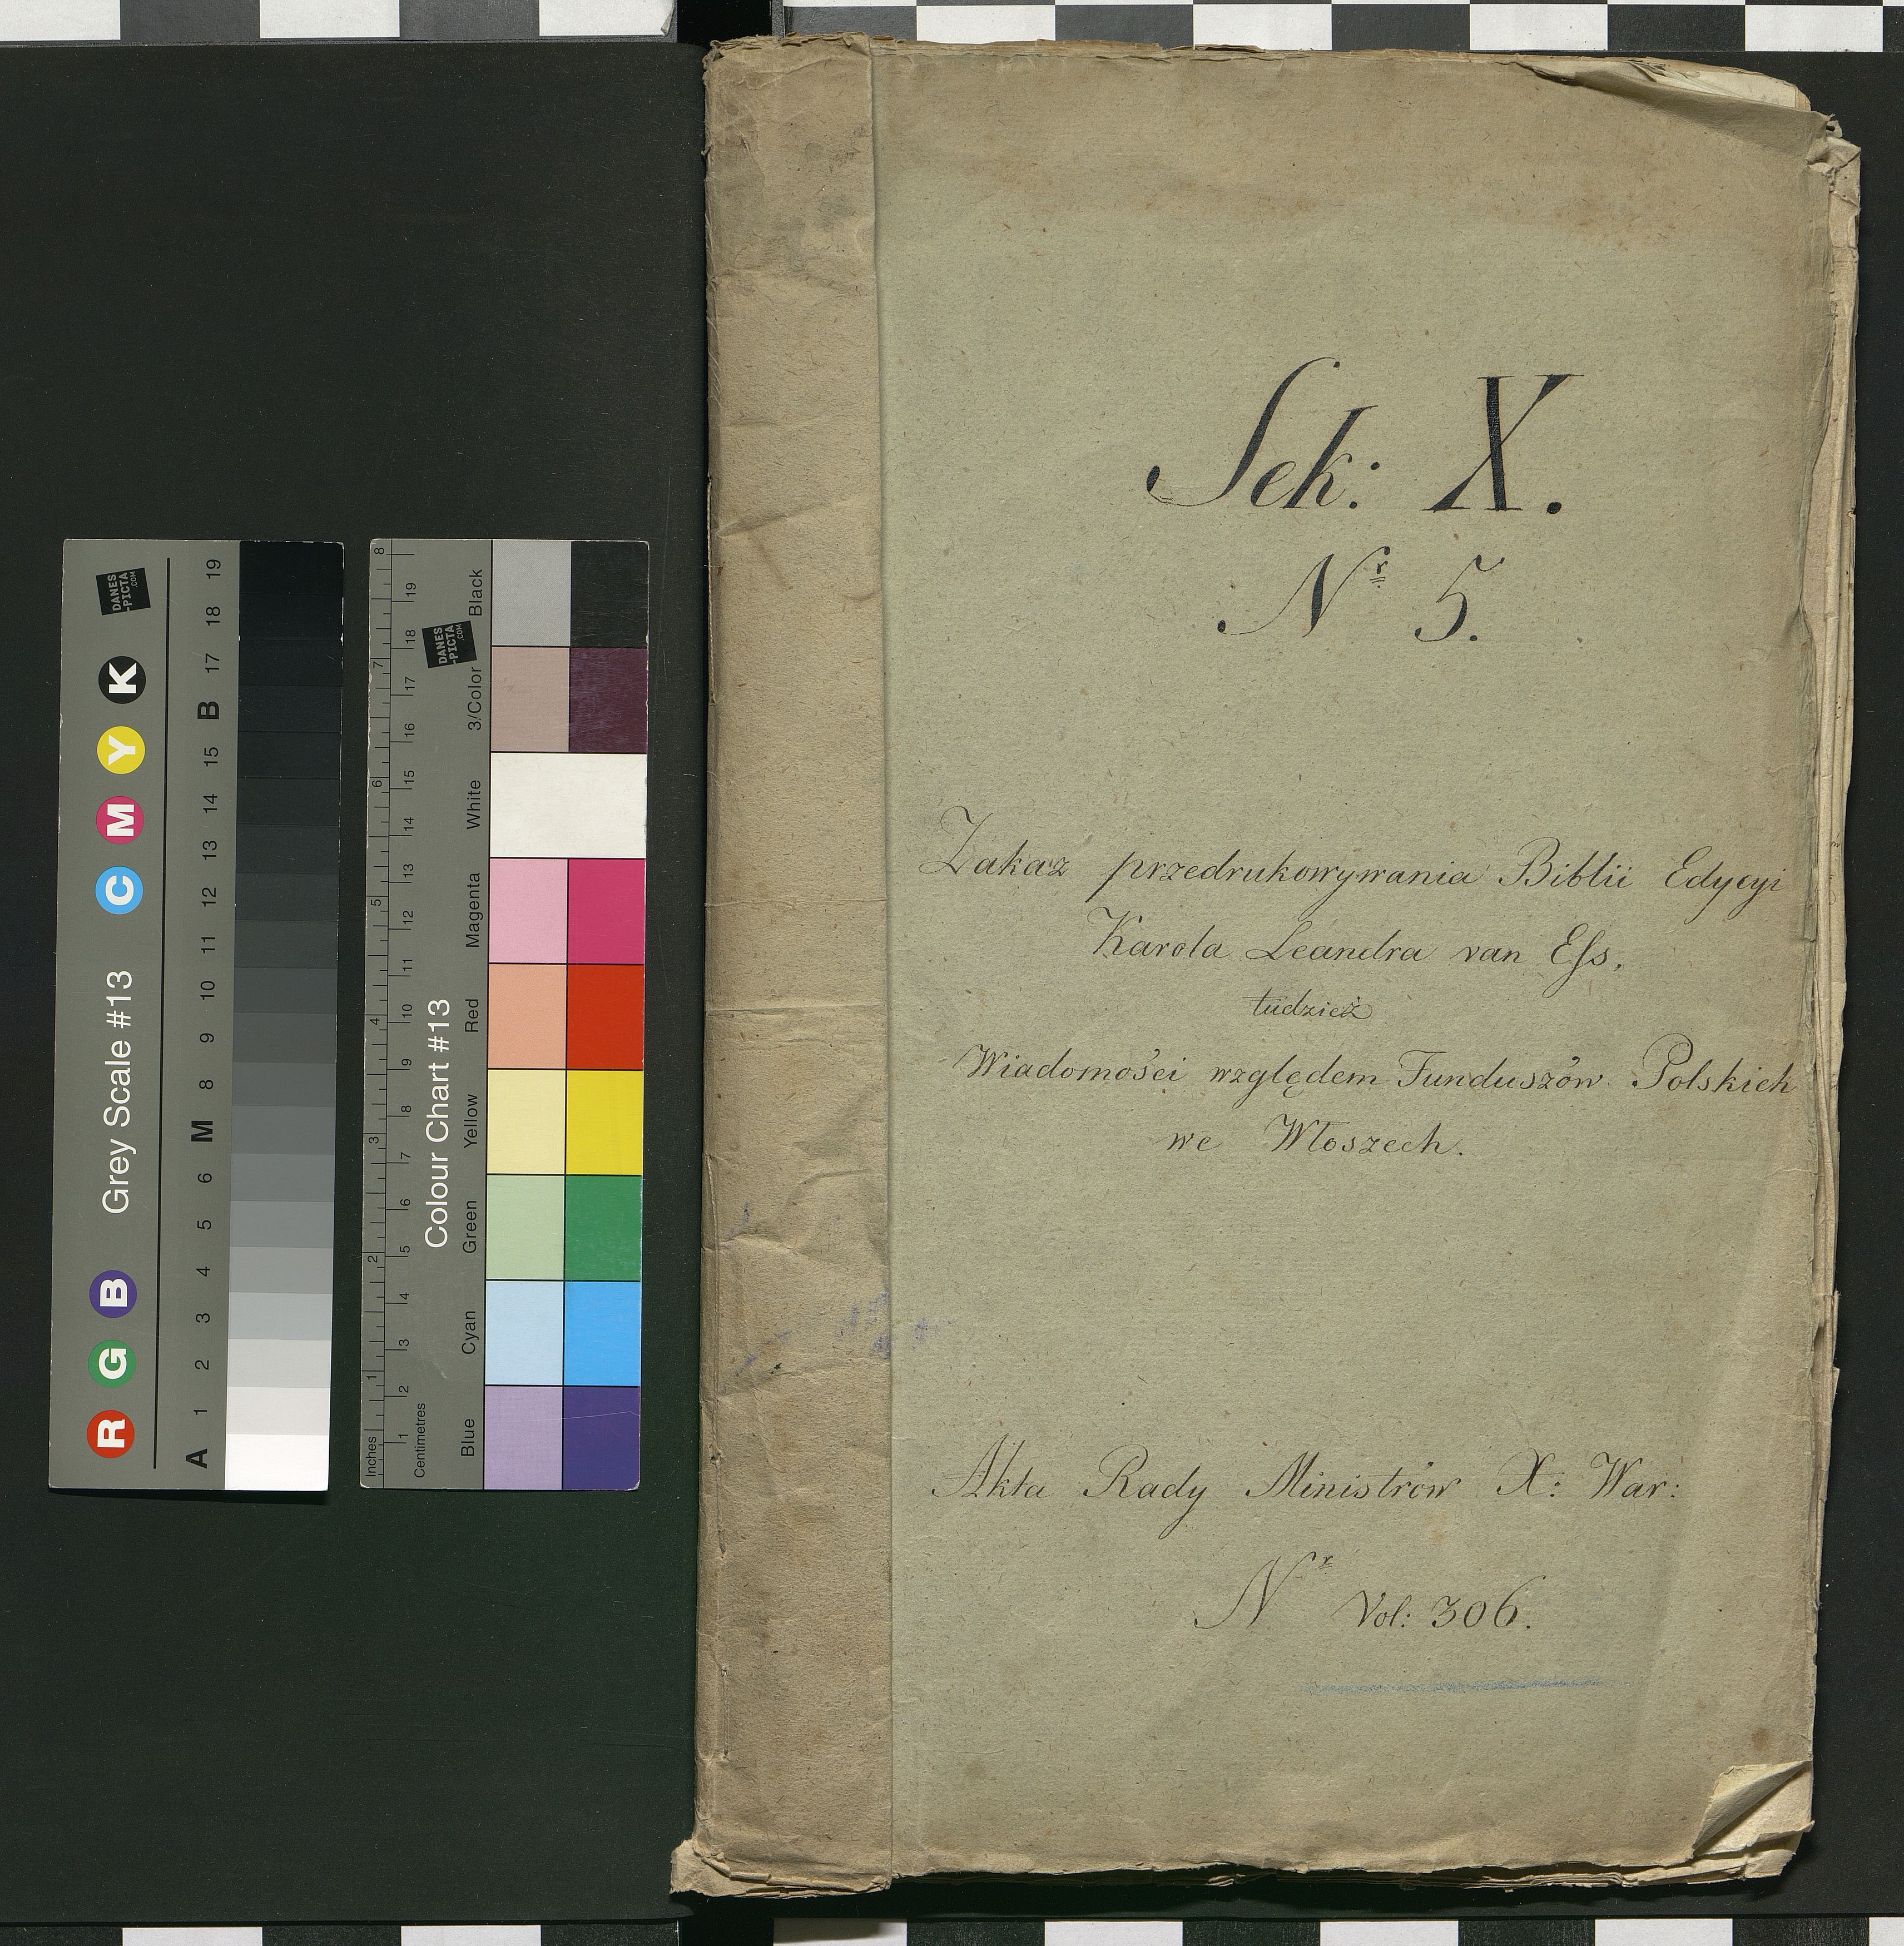 Sek: X.
Nr 5.
Zakaz przedrukowywania Biblii Edycyi
Karola Leandra van Eſs.
tudzież
Wiadomości względem Funduszów Polskich
we Włoszech.
Akta Rady Ministrów X: War:
Nr Vol: 306.
Grey Scale #13
R G B C M Y K
A 1 2 3 4 5 6 M 8 9 10 11 12 13 14 15 B 17 18 19
DANES
-PICTA
.COM
Colour Chart #13
Blue Cyan Green Yellow Red Magenta White 3/Color Black
Inches 1 2 3 4 5 6 7 8
Centimetres 1 2 3 4 5 6 7 8 9 10 11 12 13 14 15 16 17 18 19
DANES
-PICTA
.COM